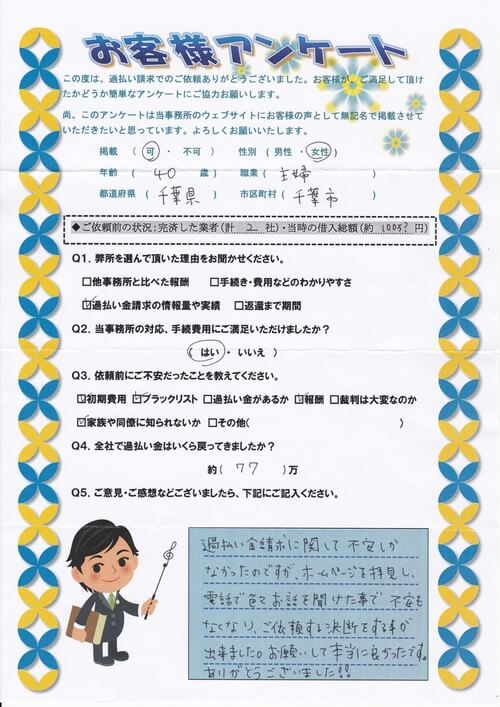 お客様アンケート
この度は、過払い請求でのご依頼ありがとうございました。お客様が、ご満足して頂け
たかどうか簡単なアンケートにご協力お願いします。
尚、このアンケートは当事務所のウェブサイトにお客様の声として無記名で掲載させて
いただきたいと思っています。よろしくお願いいたします。
掲載 ( 可 ・ 不可 ) 性別 ( 男性 ・ 女性 )
年齢 ( 40 歳 ) 職業 ( 主婦 )
都道府県 ( 千葉県 ) 市区町村 ( 千葉市 )
◆ご依頼前の状況:完済した業者(計 2 社)・当時の借入総額(約 100万? 円)
Q1. 弊所を選んで頂いた理由をお聞かせください。
□他事務所と比べた報酬 □手続き・費用などのわかりやすさ
☑過払い金請求の情報量や実績 □返還まで期間
Q2. 当事務所の対応、手続費用にご満足いただけましたか?
( はい ・ いいえ )
Q3. 依頼前にご不安だったことを教えてください。
☑初期費用 ☑ブラックリスト □過払い金があるか ☑報酬 □裁判は大変なのか
☑家族や同僚に知られないか □その他( )
Q4. 全社で過払い金はいくら戻ってきましたか?
約( 77 )万
Q5. ご意見・ご感想などございましたら、下記にご記入ください。
過払い金請求に関して不安しか
なかったのですが、ホームページを拝見し、
電話で色々お話を聞けた事で不安も
なくなり、ご依頼する決断をする事が
出来ました。お願いして本当に良かったです。
ありがとうございました!!